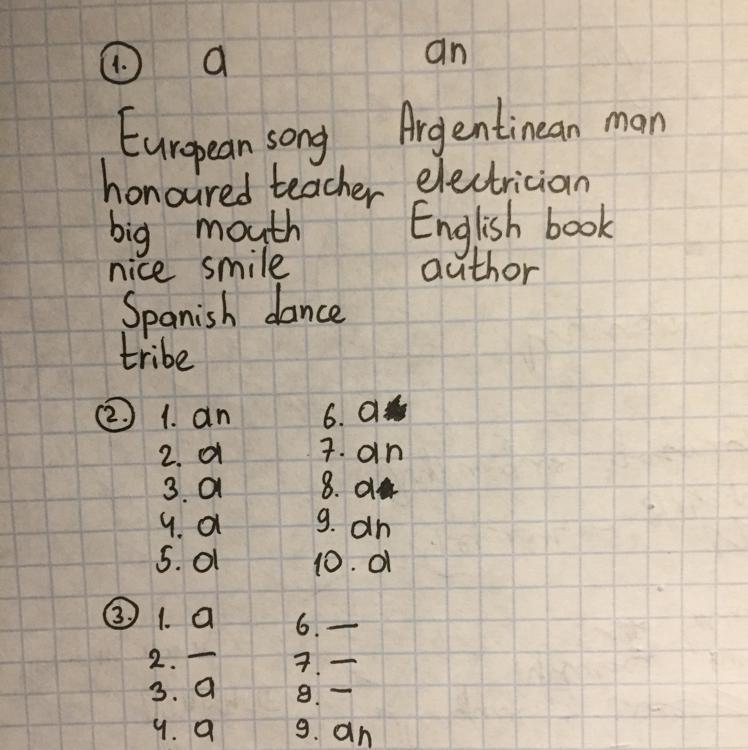 1. a an
European song Argentinean man
honoured teacher electrician
big mouth English book
nice smile author
Spanish dance
tribe
2. 1. an 6. a
2. a 7. an
3. a 8. a
4. a 9. an
5. a 10. a
3. 1. a 6. —
2. — 7. —
3. a 8. —
4. a 9. an